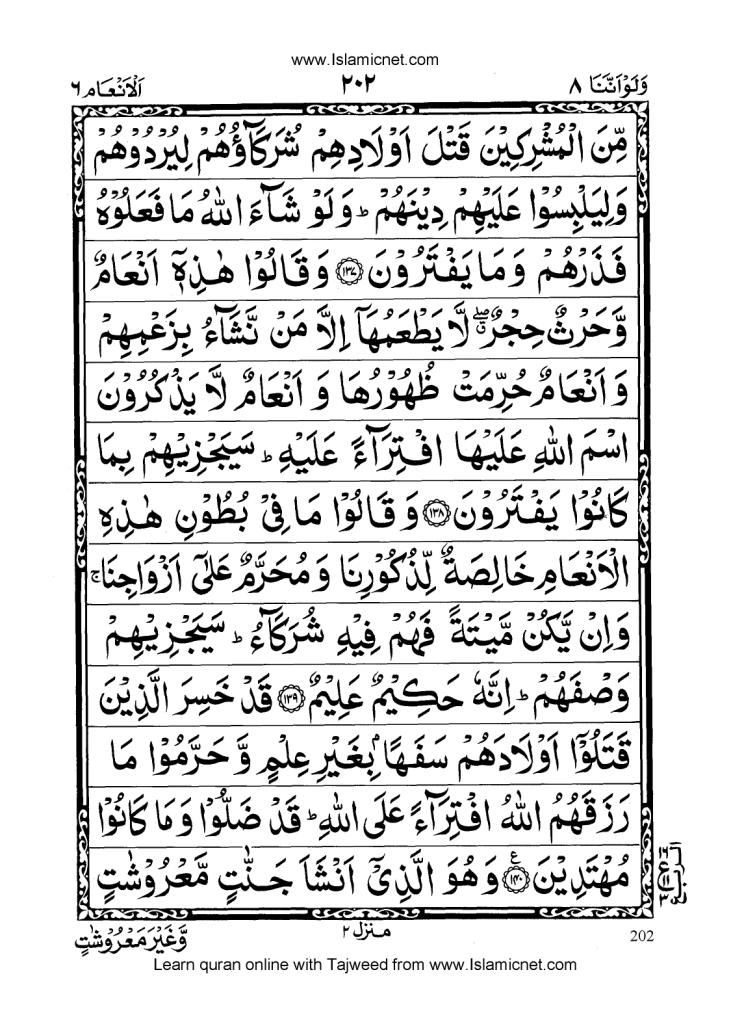 www.Islamicnet.com
وَلَوْ اَنَّنَا ٨ ٢٠٢ اَلْاَنْعَام ٦
مِّنَ الْمُشْرِكِيْنَ قَتْلَ اَوْلَادِهِمْ شُرَكَآؤُهُمْ لِيُرْدُوْهُمْ
وَلِيَلْبِسُوْا عَلَيْهِمْ دِيْنَهُمْ ؕ وَلَوْ شَآءَ اللّٰهُ مَا فَعَلُوْهُ
فَذَرْهُمْ وَمَا يَفْتَرُوْنَ ﴿١٣٧﴾ وَقَالُوْا هٰذِهٖۤ اَنْعَامٌ
وَّحَرْثٌ حِجْرٌ ۖۗ لَّا يَطْعَمُهَاۤ اِلَّا مَنْ نَّشَآءُ بِزَعْمِهِمْ
وَاَنْعَامٌ حُرِّمَتْ ظُهُوْرُهَا وَاَنْعَامٌ لَّا يَذْكُرُوْنَ
اسْمَ اللّٰهِ عَلَيْهَا افْتِرَآءً عَلَيْهِ ؕ سَيَجْزِيْهِمْ بِمَا
كَانُوْا يَفْتَرُوْنَ ﴿١٣٨﴾ وَقَالُوْا مَا فِيْ بُطُوْنِ هٰذِهِ
الْاَنْعَامِ خَالِصَةٌ لِّذُكُوْرِنَا وَمُحَرَّمٌ عَلٰۤى اَزْوَاجِنَا ۚ
وَاِنْ يَّكُنْ مَّيْتَةً فَهُمْ فِيْهِ شُرَكَآءُ ؕ سَيَجْزِيْهِمْ
وَصْفَهُمْ ؕ اِنَّهٗ حَكِيْمٌ عَلِيْمٌ ﴿١٣٩﴾ قَدْ خَسِرَ الَّذِيْنَ
قَتَلُوْۤا اَوْلَادَهُمْ سَفَهًۢا بِغَيْرِ عِلْمٍ وَّحَرَّمُوْا مَا
رَزَقَهُمُ اللّٰهُ افْتِرَآءً عَلَى اللّٰهِ ؕ قَدْ ضَلُّوْا وَمَا كَانُوْا
مُهْتَدِيْنَ ﴿١٤٠﴾ ع وَهُوَ الَّذِيْۤ اَنْشَاَ جَنّٰتٍ مَّعْرُوْشٰتٍ
١٦
ع
٣
منزل ٢
وَّغَيْرَ مَعْرُوْشٰتٍ
202
Learn quran online with Tajweed from www.Islamicnet.com